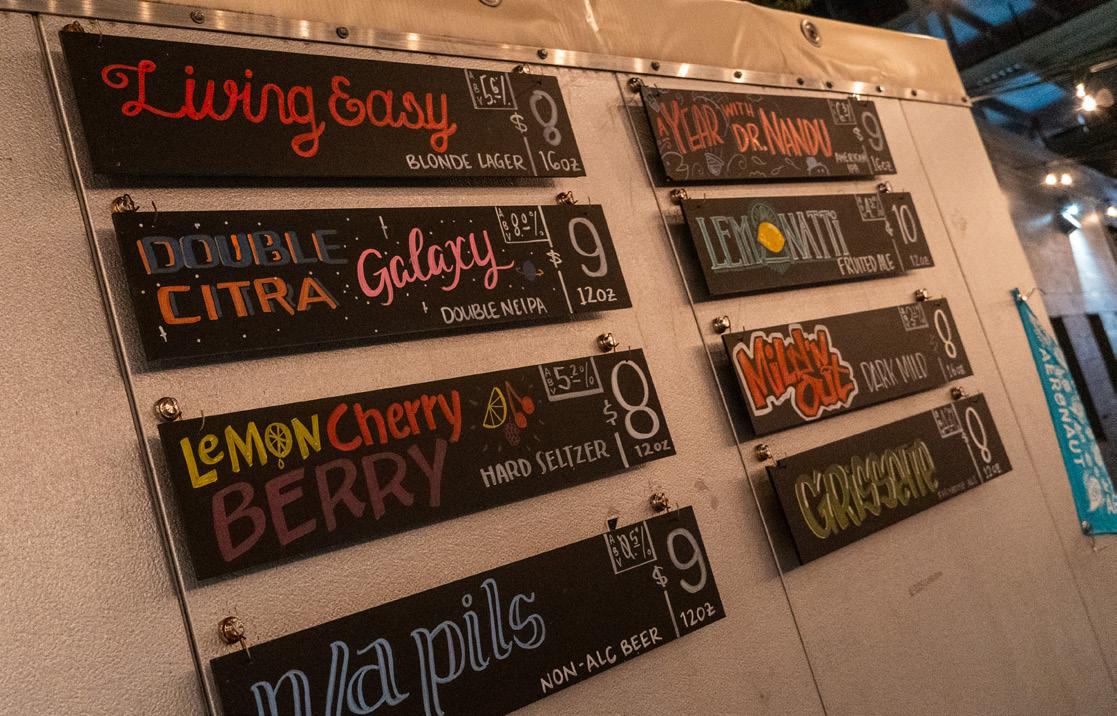 Living Easy
ABV 5.6%
$8
BLONDE LAGER
16oz
DOUBLE CITRA
Galaxy
ABV 8.0%
$9
DOUBLE NEIPA
12oz
LeMON Cherry
BERRY
ABV 5.2%
$8
HARD SELTZER
12oz
n/a pils
ABV 0.5%
$9
NON-ALC BEER
12oz
A YEAR WITH
DR. NANDU
9
AMERICAN
IPA
16oz
LEMONATTI
$10
FRUITED ALE
12oz
MiLD'N
OUT
DARK MILD
8
16oz
GRISSETTE
12oz
AERONAUT